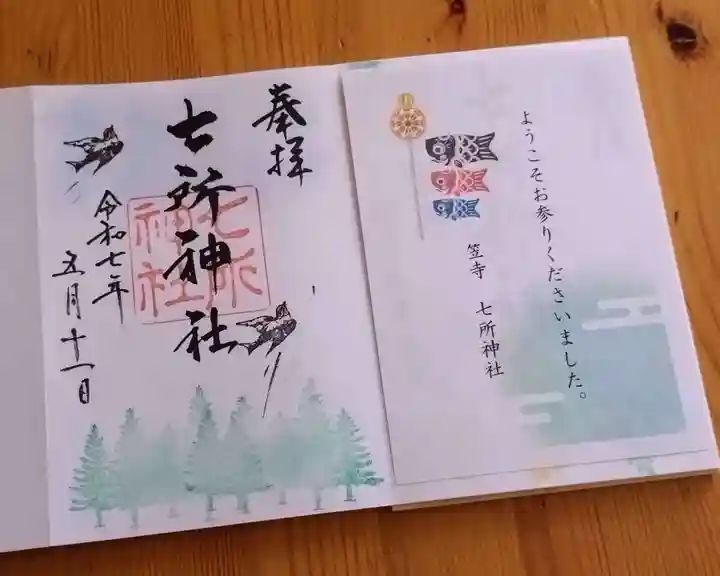 奉拝
七所神社
七所
神社
令和七年
五月十一日
ようこそお参りくださいました。
笠寺 七所神社